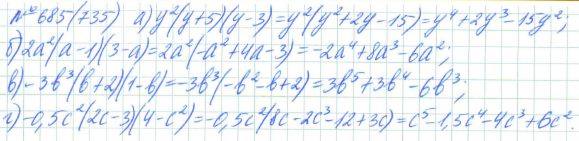 № 685 (735) а) y²(y+5)(y-3)=y²(y²+2y-15)=y⁴+2y³-15y²;
б) 2a²(a-1)(3-a)=2a²(-a²+4a-3)=-2a⁴+8a³-6a²;
в) -3b³(b+2)(1-b)=-3b³(-b²-b+2)=3b⁵+3b⁴-6b³;
г) -0,5c²(2c-3)(4-c²)=-0,5c²(8c-2c³-12+3c)=c⁵-1,5c⁴-4c³+6c².